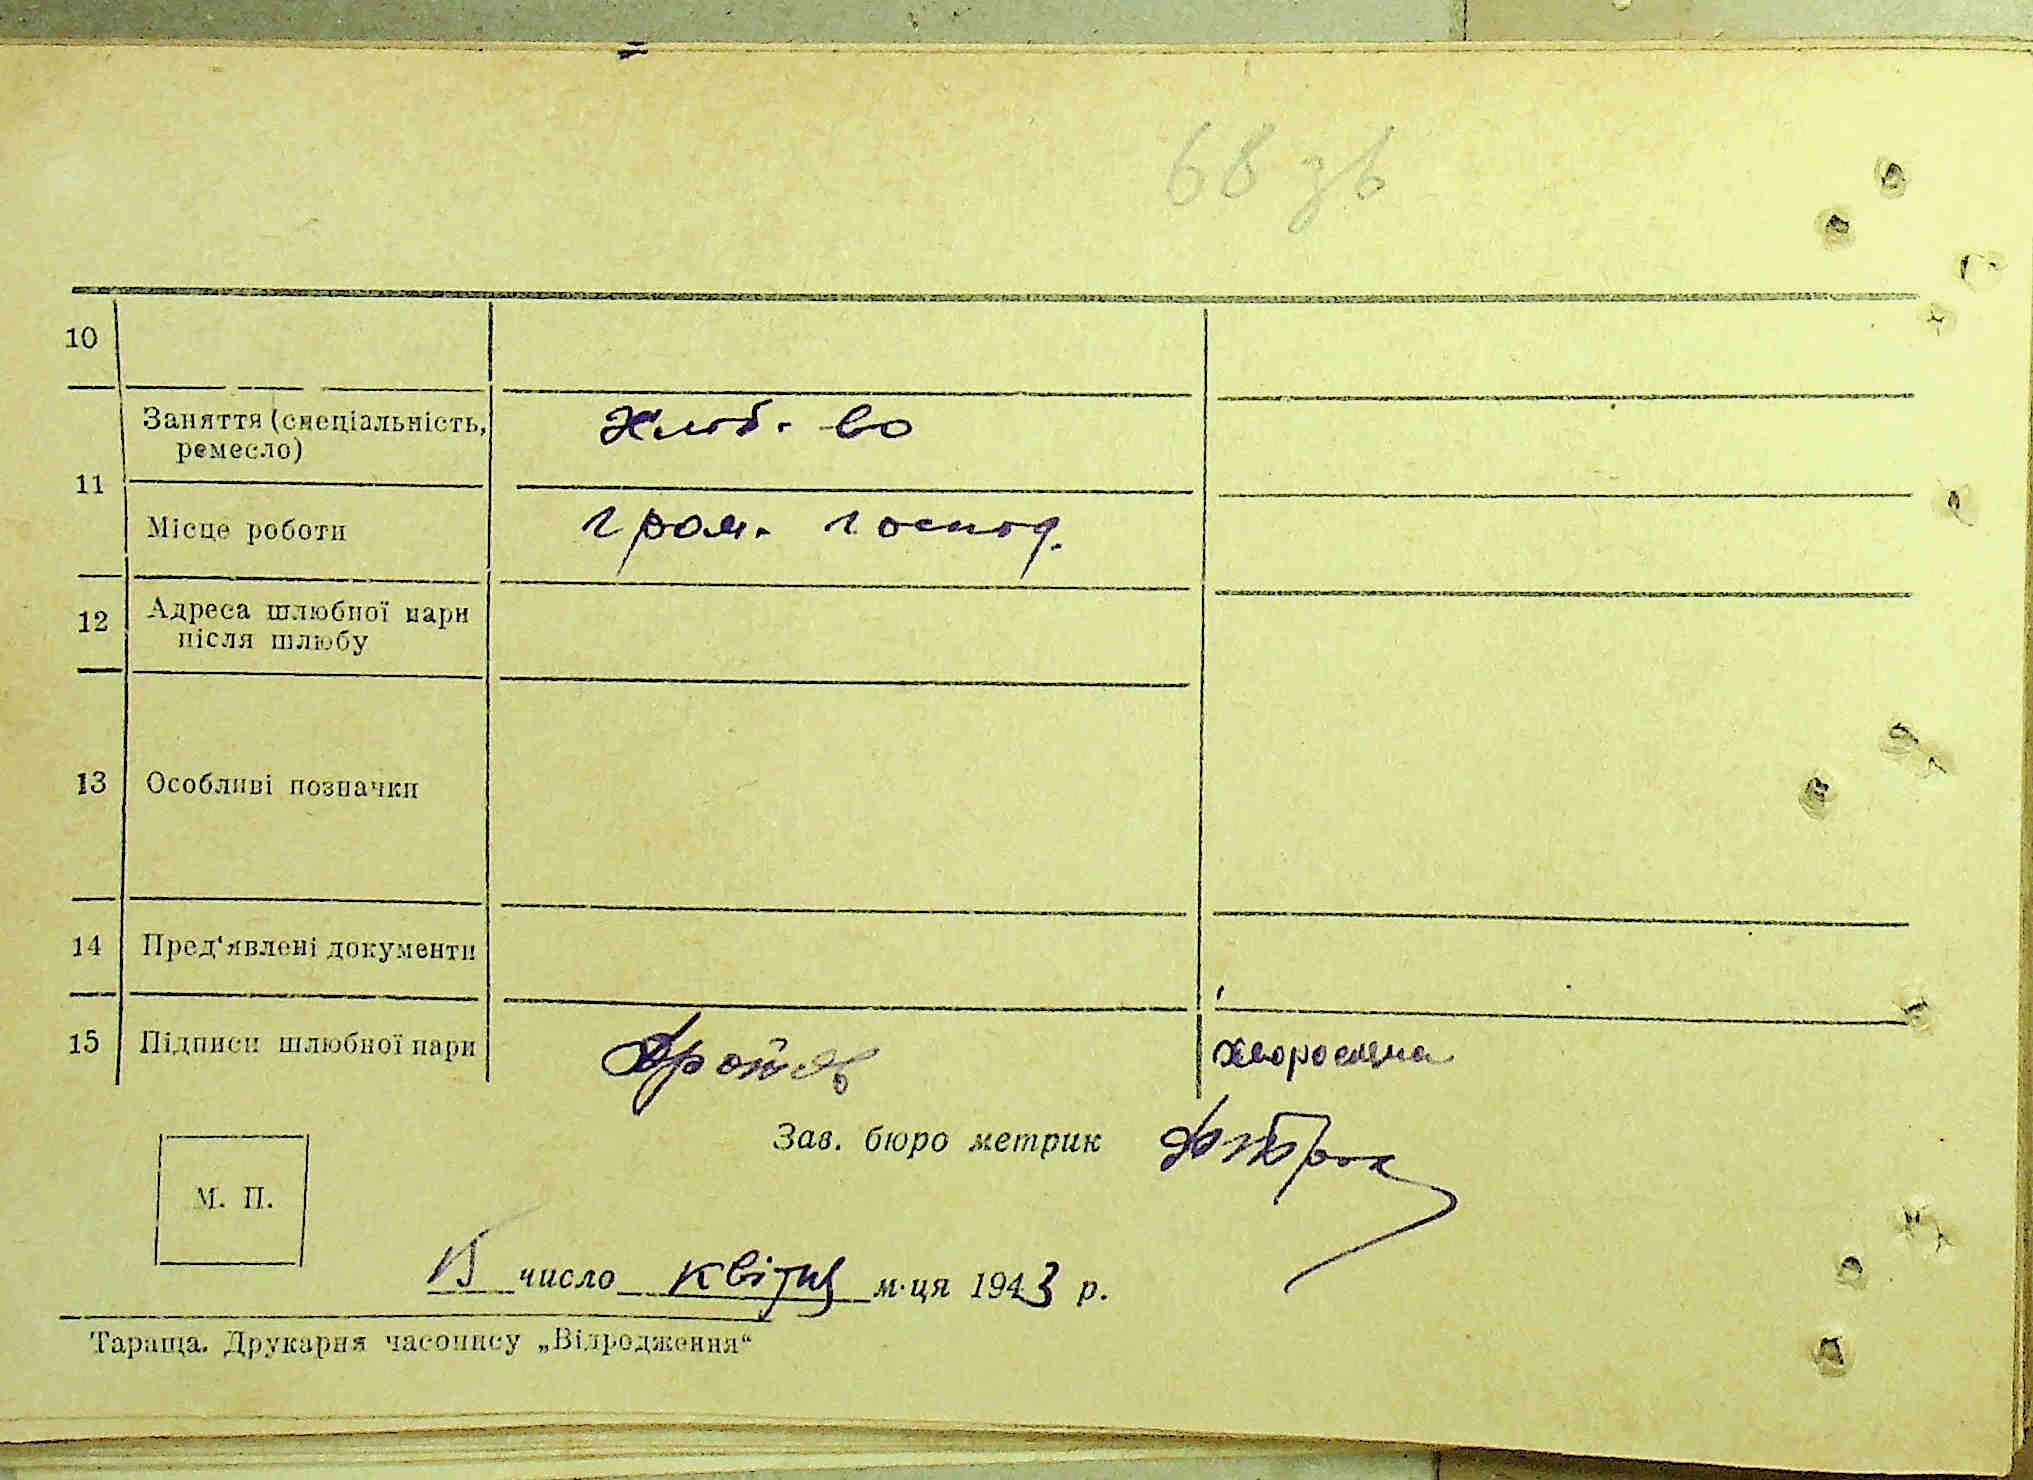 68 зв
10
Заняття (спеціальність, ремесло) хліб-во
11
Місце роботи гром. господ.
12 Адреса шлюбної пари після шлюбу
13 Особливі позначки
14 Пред'явлені документи
15 Підписи шлюбної пари
Зав. бюро метрик
М. П.
15 число квітня м-ця 1943 р.
Тараща. Друкарня часопису „Відродження“